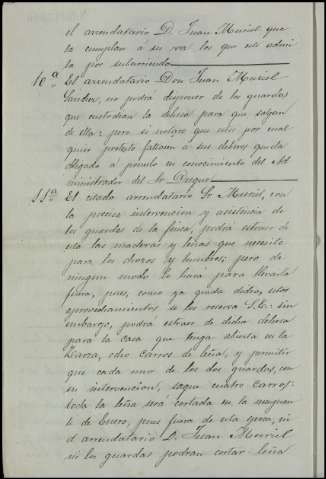 el arrendatario D. Juan Muriel que
la cumplan a su vez los que este admi-
ta por subarriendo.
10.ª El arrendatario Don Juan Muriel
Sanchez, no podrá disponer de los guardas
que custodian la dehesa para que salgan
de ella; pero si notase que estos por cual
quier pretesto faltasen a sus deberes queda
obligado a ponerlo en conocimiento del Ad
ministrador del Sr. Duque.
11.ª El citado arrendatario Sr. Muriel, con
la precisa intervencion y asistencia de
los guardas de la finca, podrá estraer de
esta las maderas y leñas que necesite
para los chozos y lumbres; pero de
ningun modo lo hará para llevarla
fuera, pues, como ya queda dicho, estos
aprovechamientos se los reserva S.E.: sin
embargo, podrá estraer de dicha dehesa
para la casa que tenga abierta en la
Zarza, ocho carros de leña, y permitir
que cada uno de los dos guardas, con
su intervencion, saque cuatro carros:
toda la leña será cortada en la menguan
te de Enero, pues fuera de esta época, ni
el arrendatario D. Juan Muriel
ni los guardas podrán cortar leña